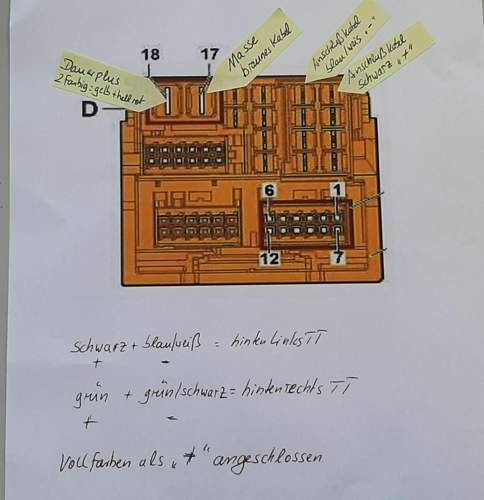 Dauerplus
2farbig=gelb+hellrot
Masse
braunes Kabel
Anschlußkabel
blau/weis „-"
Anschlußkabel
schwarz „+"
18
17
D
6
1
12
7
schwarz + blau/weiß = hinten links TT
+ -
grün + grün/schwarz = hinten rechts TT
+ -
Vollfarben als „+" angeschlossen